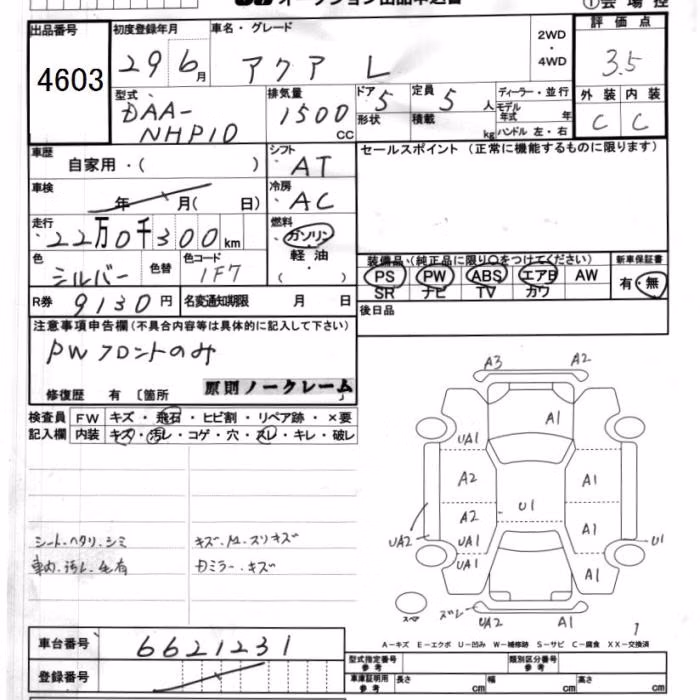 オークション出品申込書
①会場控
出品番号
4603
初度登録年月
29 6月
車名・グレード
アクア L
2WD
・
4WD
評価点
3.5
外装 内装
C C
型式
DAA-
NHP10
排気量
1500
CC
ドア 定員
5 5 人
形状 積載
kg
ディーラー・並行
モデル
年式 年
ハンドル 左・右
車歴
自家用・( )
シフト
AT
セールスポイント (正常に機能するものに限ります)
車検
年 月( 日)
冷房
AC
走行
22万0千300km
燃料
ガソリン
軽油
( )
色
シルバー
色替
色コード
1F7
装備品(純正品に限り○をつけてください)
PS PW ABS エアB AW
SR ナビ TV カワ
新車保証書
有・無
R券 9130円
名変通知期限 月 日
後日品
注意事項申告欄(不具合内容等は具体的に記入して下さい)
PWフロントのみ
原則ノークレーム
修復歴 有 〔箇所 〕
検査員
記入欄
FW キズ・飛石・ヒビ割・リペア跡・×要
内装 キズ・汚レ・コゲ・穴・スレ・キレ・破レ
シート・ヘタリ・シミ
車内・汚レ・毛有
スリキズ
Dミラー・キズ
A3 A2
A1
UA1
A2 A1
U1
A2 A1
UA2 UA1 U1
UA1 A1
スペア
ズレ UA2 A1
1
A-キズ E-エクボ U-凹み W-補修跡 S-サビ C-腐食 XX-交換済
車台番号 6621231
登録番号
型式指定番号
参考
類別区分番号
参考
車庫証明用
参考
長さ cm 幅 cm 高さ cm